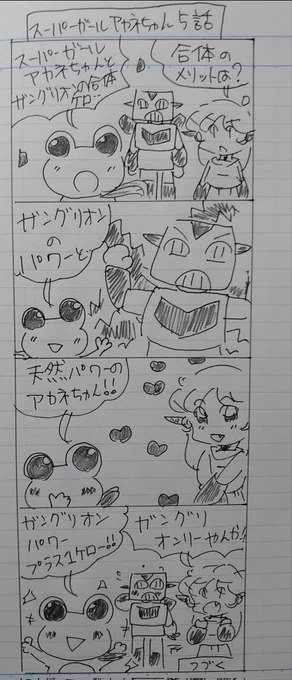 スーパーガールアカネちゃん5話
合体の
メリットは？
スーパーガール
アカネちゃんと
ザングリオンの合体
ケロ…
ザングリオン
の
パワーと
天然パワーの
アカネちゃん!!
ザングリ
オンリーやんか!
ザングリオン
パワー
プラス1ケロー!!
つづく